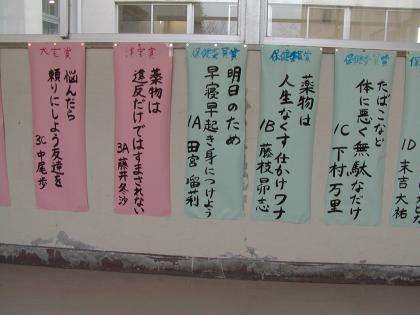 保健委員賞
たばこなど
体に悪く無駄なだけ
1C 下村万里
保健委員賞
薬物は
人生なくす仕かけワナ
1B 藤枝昴志
保健委員賞
明日のため
早寝早起き身につけよう
1A 田宮瑠莉
薬物は
違反だけではすまされない
3A 藤井冬沙
大宮賞
悩んだら
頼りにしよう友達を
3C 中尾歩
D 末吉大祐